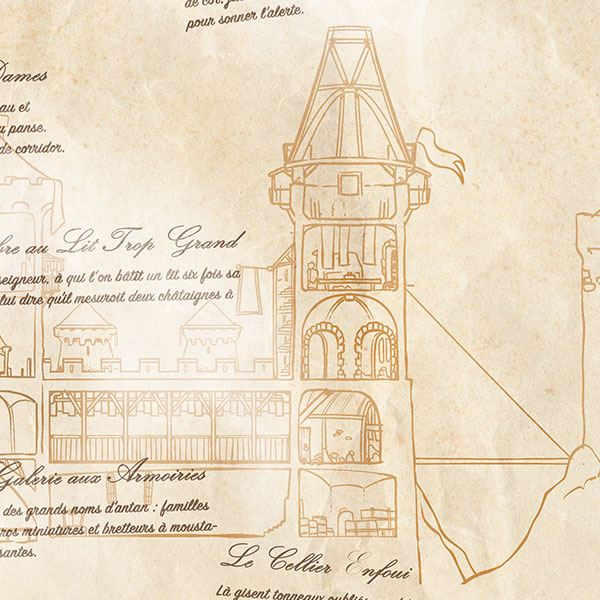 de cor, 
pour sonner l'alerte.
Dames
au et
u panse.
de corridor.
bre au Lit Trop Grand
seigneur, à qui l'on bâtit un lit six fois sa
lui dire qu'il mesuroit deux châtaignes à
Galerie aux Armoiries
des grands noms d'antan : familles
ros miniatures et bretteurs à mousta-
santes.
Le Cellier Enfoui
Là gisent tonneaux oubliés